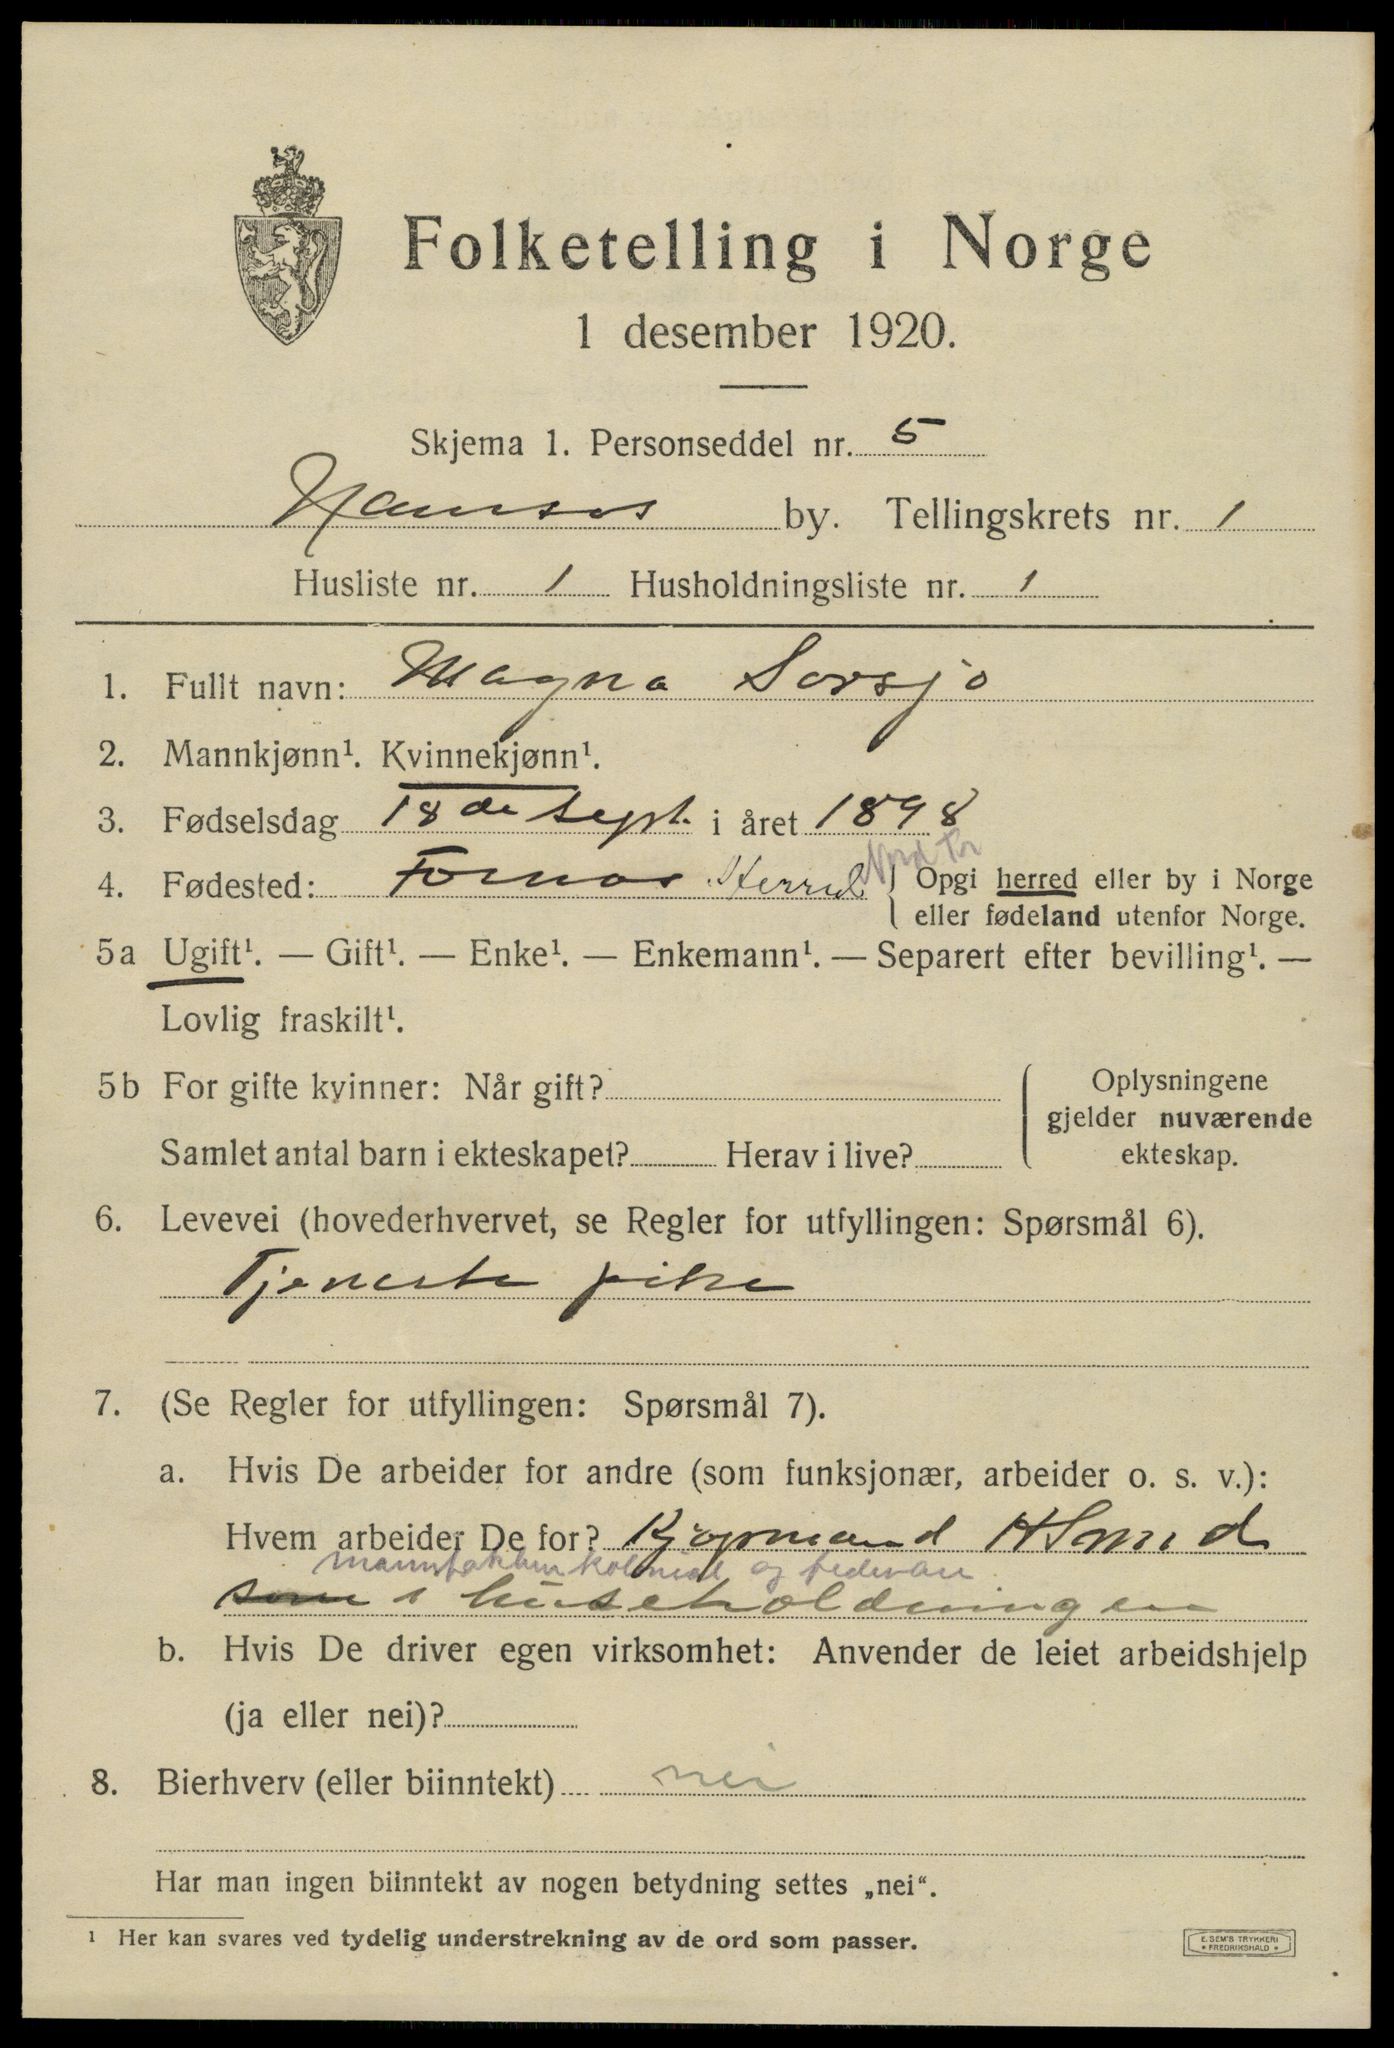 Folketelling i Norge
1 desember 1920.
Skjema 1. Personseddel nr. 5
Namsos by. Tellingskrets nr. 1
Husliste nr. 1 Husholdningsliste nr. 1
1. Fullt navn: Magna Sorsjo
2. Mannkjønn¹. Kvinnekjønn¹.
3. Fødselsdag 18de Sept. i året 1898
Nord Tr
4. Fødested: Fornes Herred { Opgi herred eller by i Norge
eller fødeland utenfor Norge.
5a Ugift¹. — Gift¹. — Enke¹. — Enkemann¹. — Separert efter bevilling¹. —
Lovlig fraskilt¹.
5b For gifte kvinner: Når gift? { Oplysningene
gjelder nuværende
Samlet antal barn i ekteskapet? Herav i live? ekteskap.
6. Levevei (hovederhvervet, se Regler for utfyllingen: Spørsmål 6).
Tjeneste pike
7. (Se Regler for utfyllingen: Spørsmål 7).
a. Hvis De arbeider for andre (som funksjonær, arbeider o. s. v.):
Hvem arbeider De for? Kjøpmand H Smid
kolonial og
som i huseholdningen
b. Hvis De driver egen virksomhet: Anvender de leiet arbeidshjelp
(ja eller nei)?
8. Bierhverv (eller biinntekt) nei
Har man ingen biinntekt av nogen betydning settes „nei“.
¹ Her kan svares ved tydelig understrekning av de ord som passer.
E. SEM'S TRYKKERI
* FREDRIKSHALD *